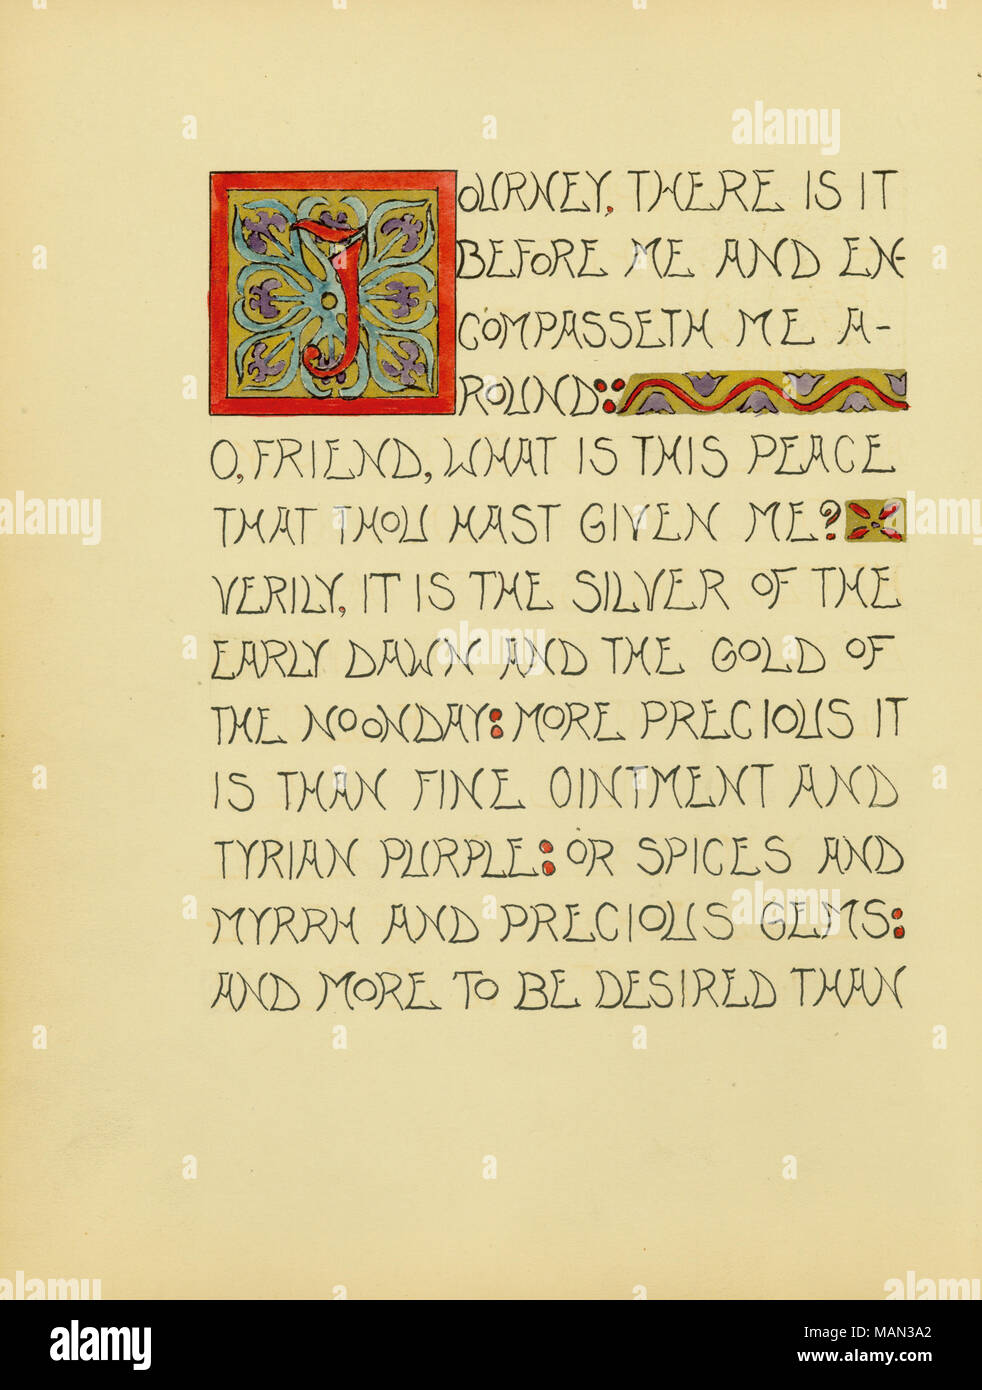 JOURNEY, THERE IS IT
BEFORE ME AND EN-
COMPASSETH ME A-
ROUND:
O, FRIEND, WHAT IS THIS PEACE
THAT THOU HAST GIVEN ME?
VERILY, IT IS THE SILVER OF THE
EARLY DAWN AND THE GOLD OF
THE NOONDAY: MORE PRECIOUS IT
IS THAN FINE OINTMENT AND
TYRIAN PURPLE: OR SPICES AND
MYRRH AND PRECIOUS GEMS:
AND MORE TO BE DESIRED THAN
alamy
Image ID: MAN3A2
www.alamy.com